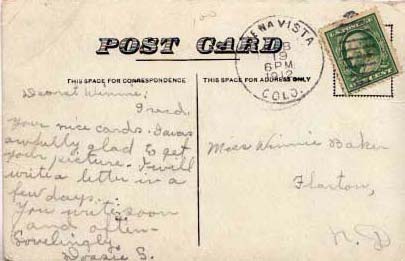 POST CARD
THIS SPACE FOR CORRESPONDENCE
THIS SPACE FOR ADDRESS ONLY
BUENA VISTA
19
6 PM
1912
COLO.
Dearest Winnie:
I recd.
your nice cards. I was
awfully glad to get
your picture. I will
write a letter in a
few days.
You write soon
and often.
Lovelingly,
S.
Miss Winnie Baker
Flaxton,
N. D